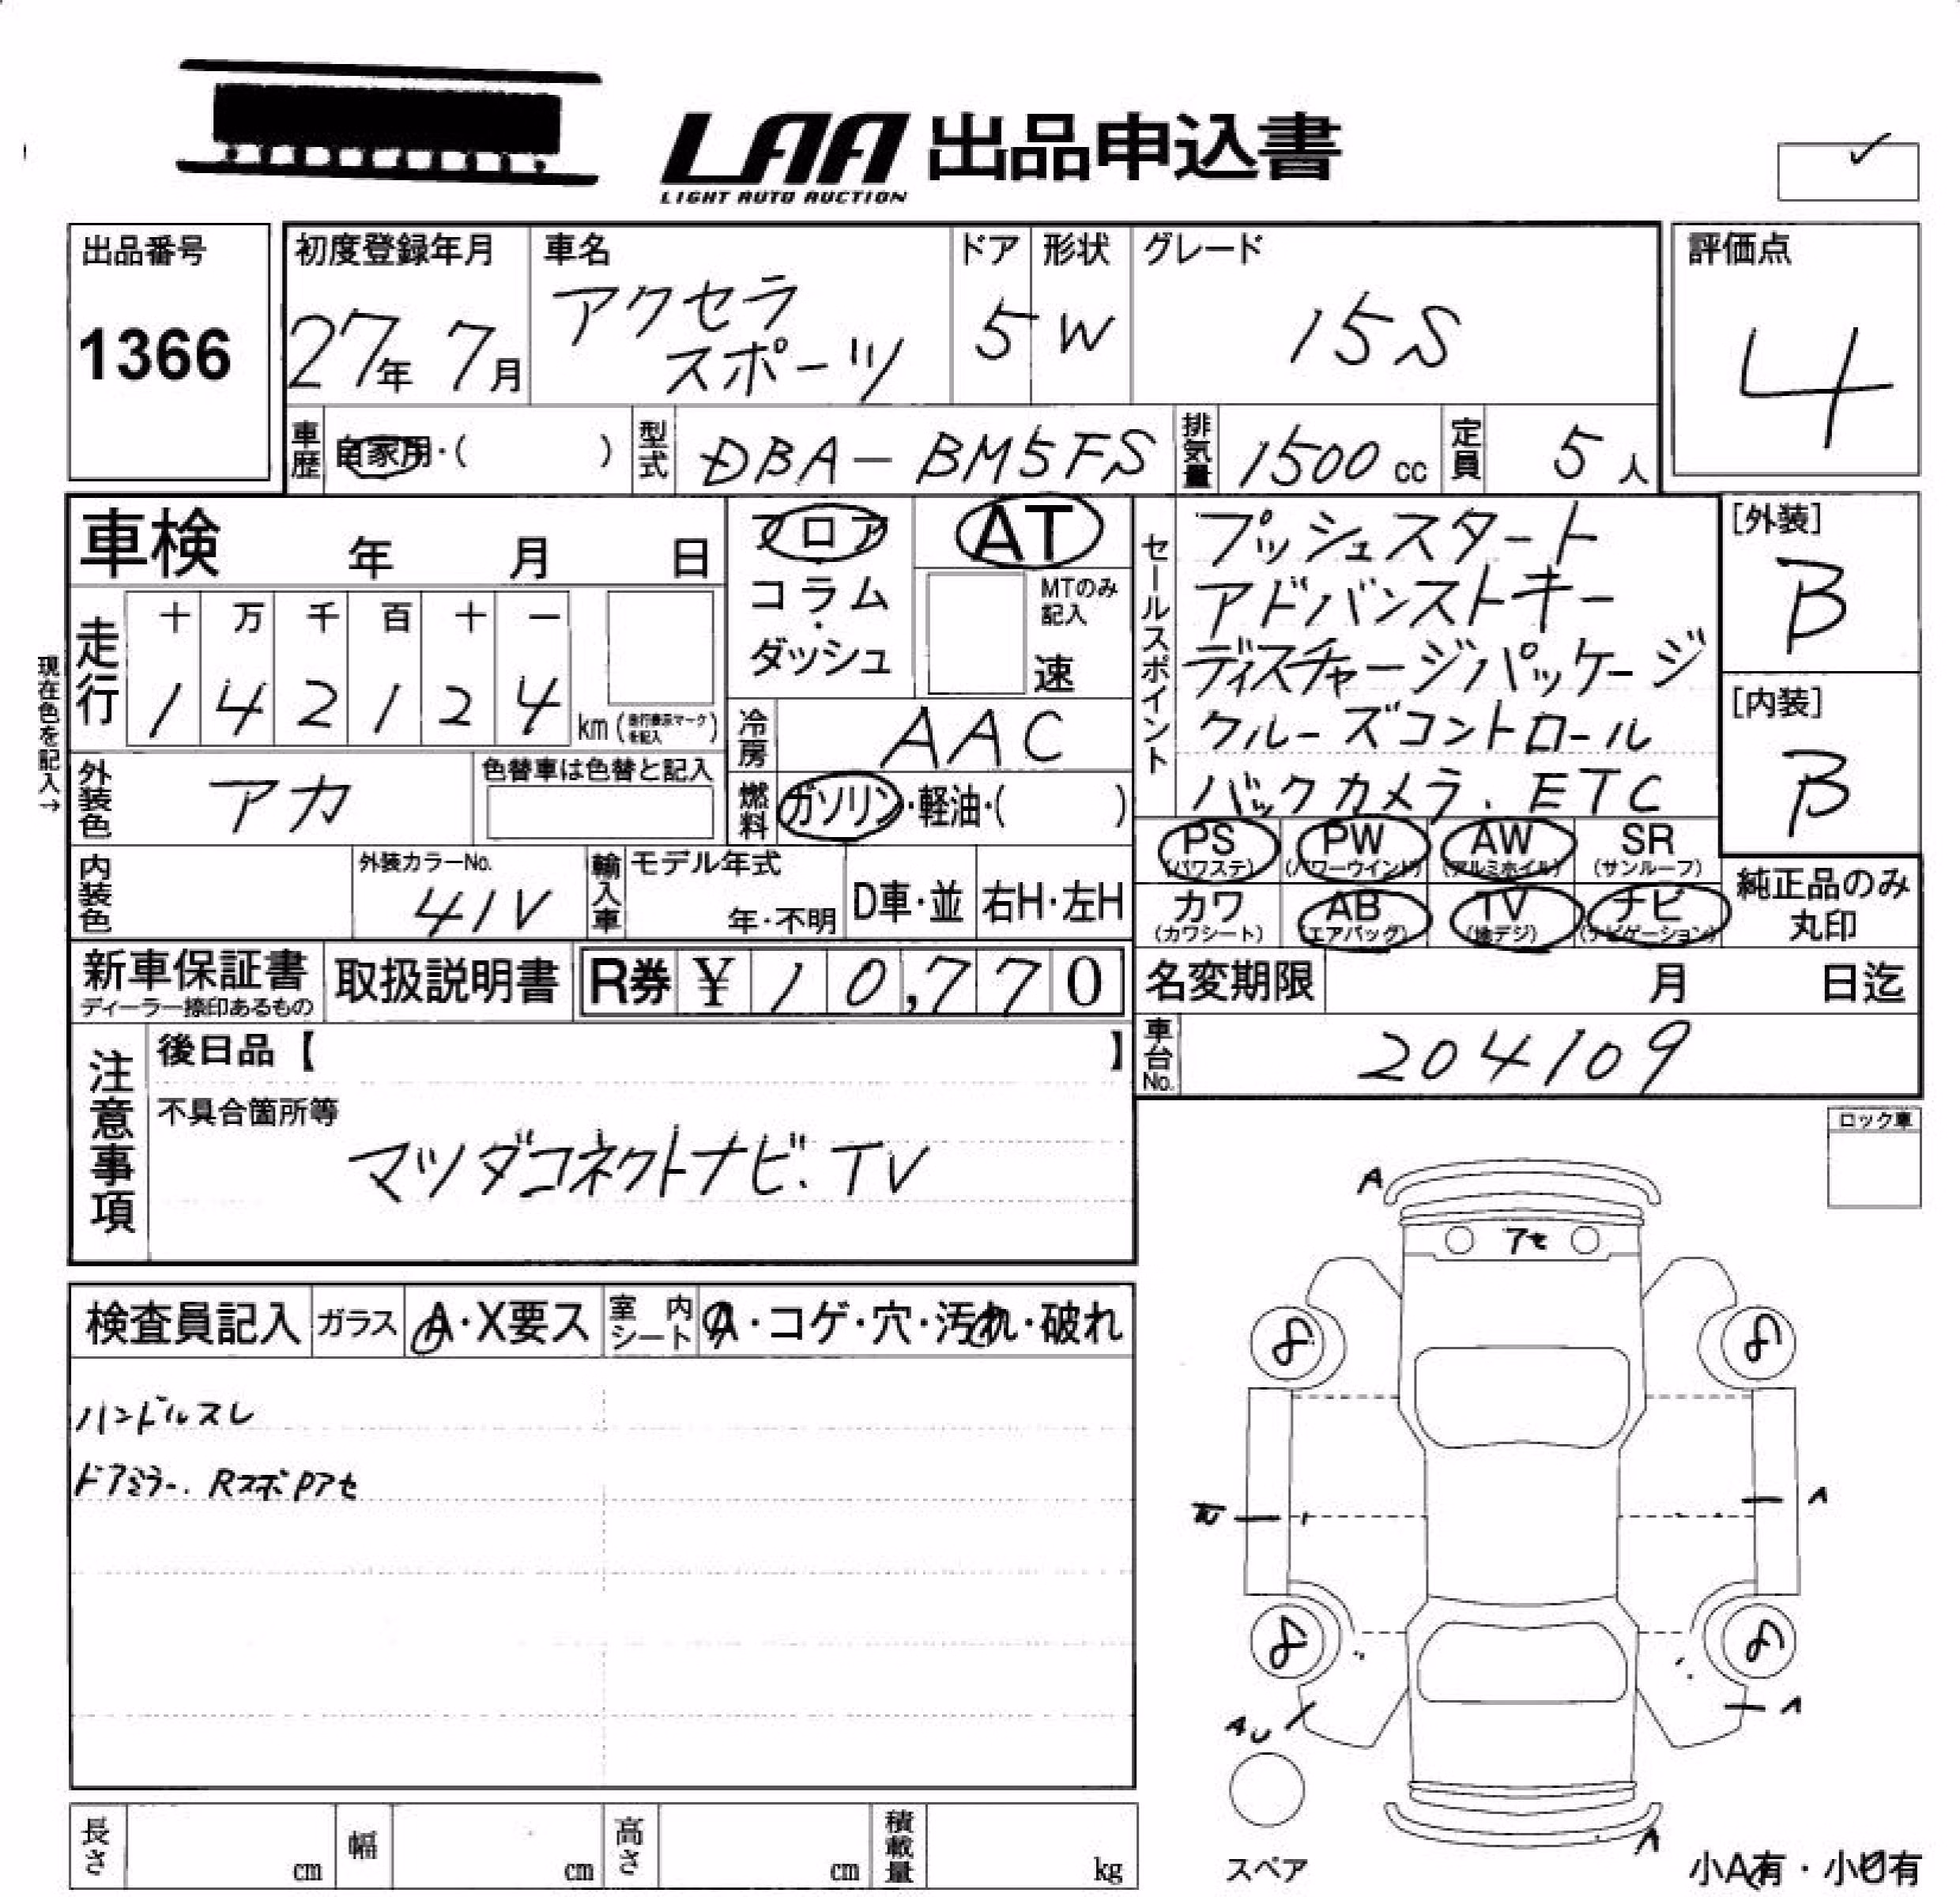 LAA 出品申込書
LIGHT AUTO AUCTION
出品番号
1366
初度登録年月
27年 7月
車名
アクセラ
スポーツ
ドア
5
形状
W
グレード
15S
評価点
4
車歴
自家用・( )
型式
DBA-BM5FS
排気量
1500 cc
定員
5 人
車検 年 月 日
フロア
コラム
・
ダッシュ
AT
MTのみ
記入
速
セールスポイント
プッシュスタート
アドバンストキー
ディスチャージパッケージ
クルーズコントロール
バックカメラ.ETC
[外装]
B
[内装]
B
現在色を記入→
走行
十 万 千 百 十 一
1 4 2 1 2 4
km (走行表示マークを記入)
冷房
AAC
外装色
アカ
色替車は色替と記入
燃料
ガソリン・軽油・( )
PS
(パワステ)
PW
(パワーウインド)
AW
(アルミホイル)
SR
(サンルーフ)
カワ
(カワシート)
AB
(エアバッグ)
TV
(地デジ)
ナビ
(ナビゲーション)
純正品のみ
丸印
内装色
外装カラーNo.
41V
輸入車
モデル年式
年・不明
D車・並
右H・左H
新車保証書
ディーラー捺印あるもの
取扱説明書
R券 ¥ 10,770
名変期限 月 日迄
車台No.
204109
注意事項
後日品【 】
不具合箇所等
マツダコネクトナビ.TV
ロック車
検査員記入
ガラス
A・X要ス
室内
シート
A・コゲ・穴・汚れ・破れ
ハンドルスレ
ドアミラー.RスポPアセ
A
アセ
8
8
A
8
8
AU
A
A
スペア
小A有・小U有
長さ cm
幅 cm
高さ cm
積載量 kg